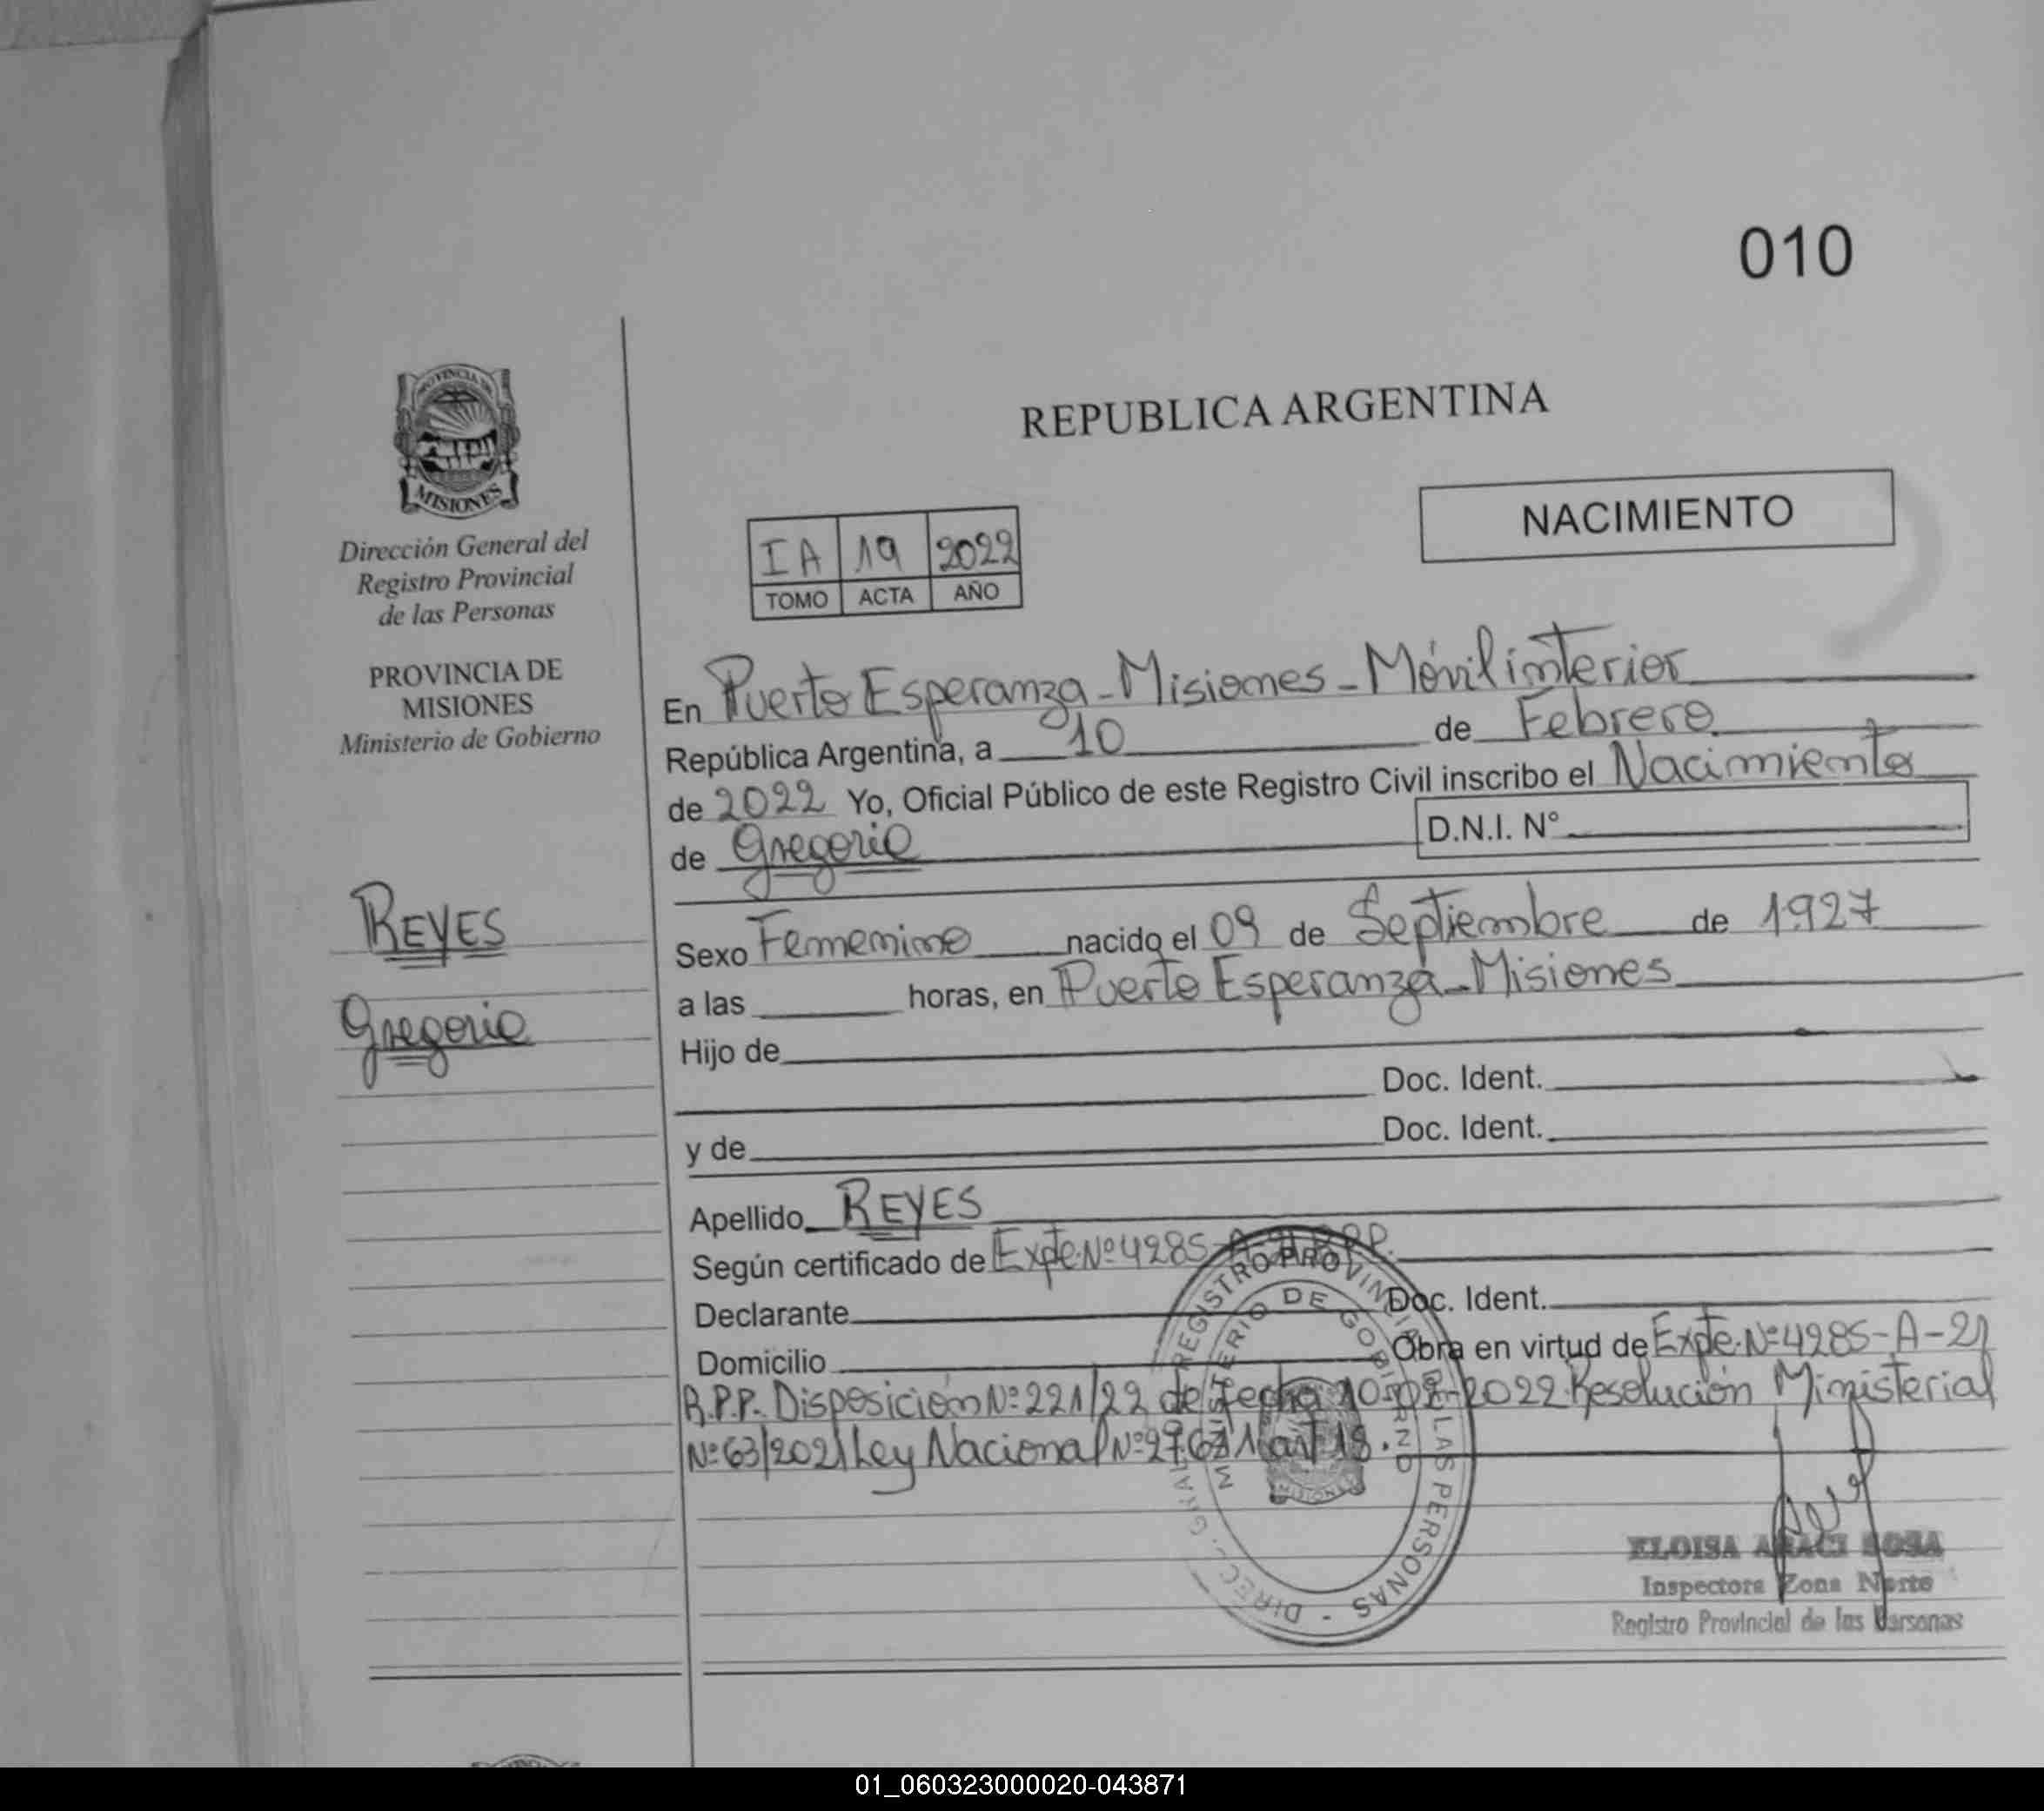 010
REPUBLICA ARGENTINA
NACIMIENTO
PROVINCIA DE
MISIONES
Dirección General del
Registro Provincial
de las Personas
PROVINCIA DE
MISIONES
Ministerio de Gobierno
REYES
Gregorio
IA 19 2022
TOMO ACTA AÑO
En Puerto Esperanza - Misiones - Móvil interior
República Argentina, a 10 de Febrero
de 2022 Yo, Oficial Público de este Registro Civil inscribo el Nacimiento
de Gregorio D.N.I. N°
Sexo Femenino nacido el 09 de Septiembre de 1927
a las horas, en Puerto Esperanza - Misiones
Hijo de
Doc. Ident.
y de Doc. Ident.
Apellido REYES
Según certificado de Expte. Nº 4285-A-21 R.P.P.
Declarante Doc. Ident.
Domicilio Obra en virtud de Expte. Nº 4285-A-21
R.P.P. Disposición Nº 221/22 de fecha 10-02-2022 Resolución Ministerial
Nº 63/2021 Ley Nacional Nº art 18.
DIREC. GRAL. REGISTRO PROVINCIAL DE LAS PERSONAS -
MINISTERIO DE GOBIERNO
MISIONES
ELOISA ARACI SOSA
Inspectora Zona Norte
Registro Provincial de las Personas
01_060323000020-043871